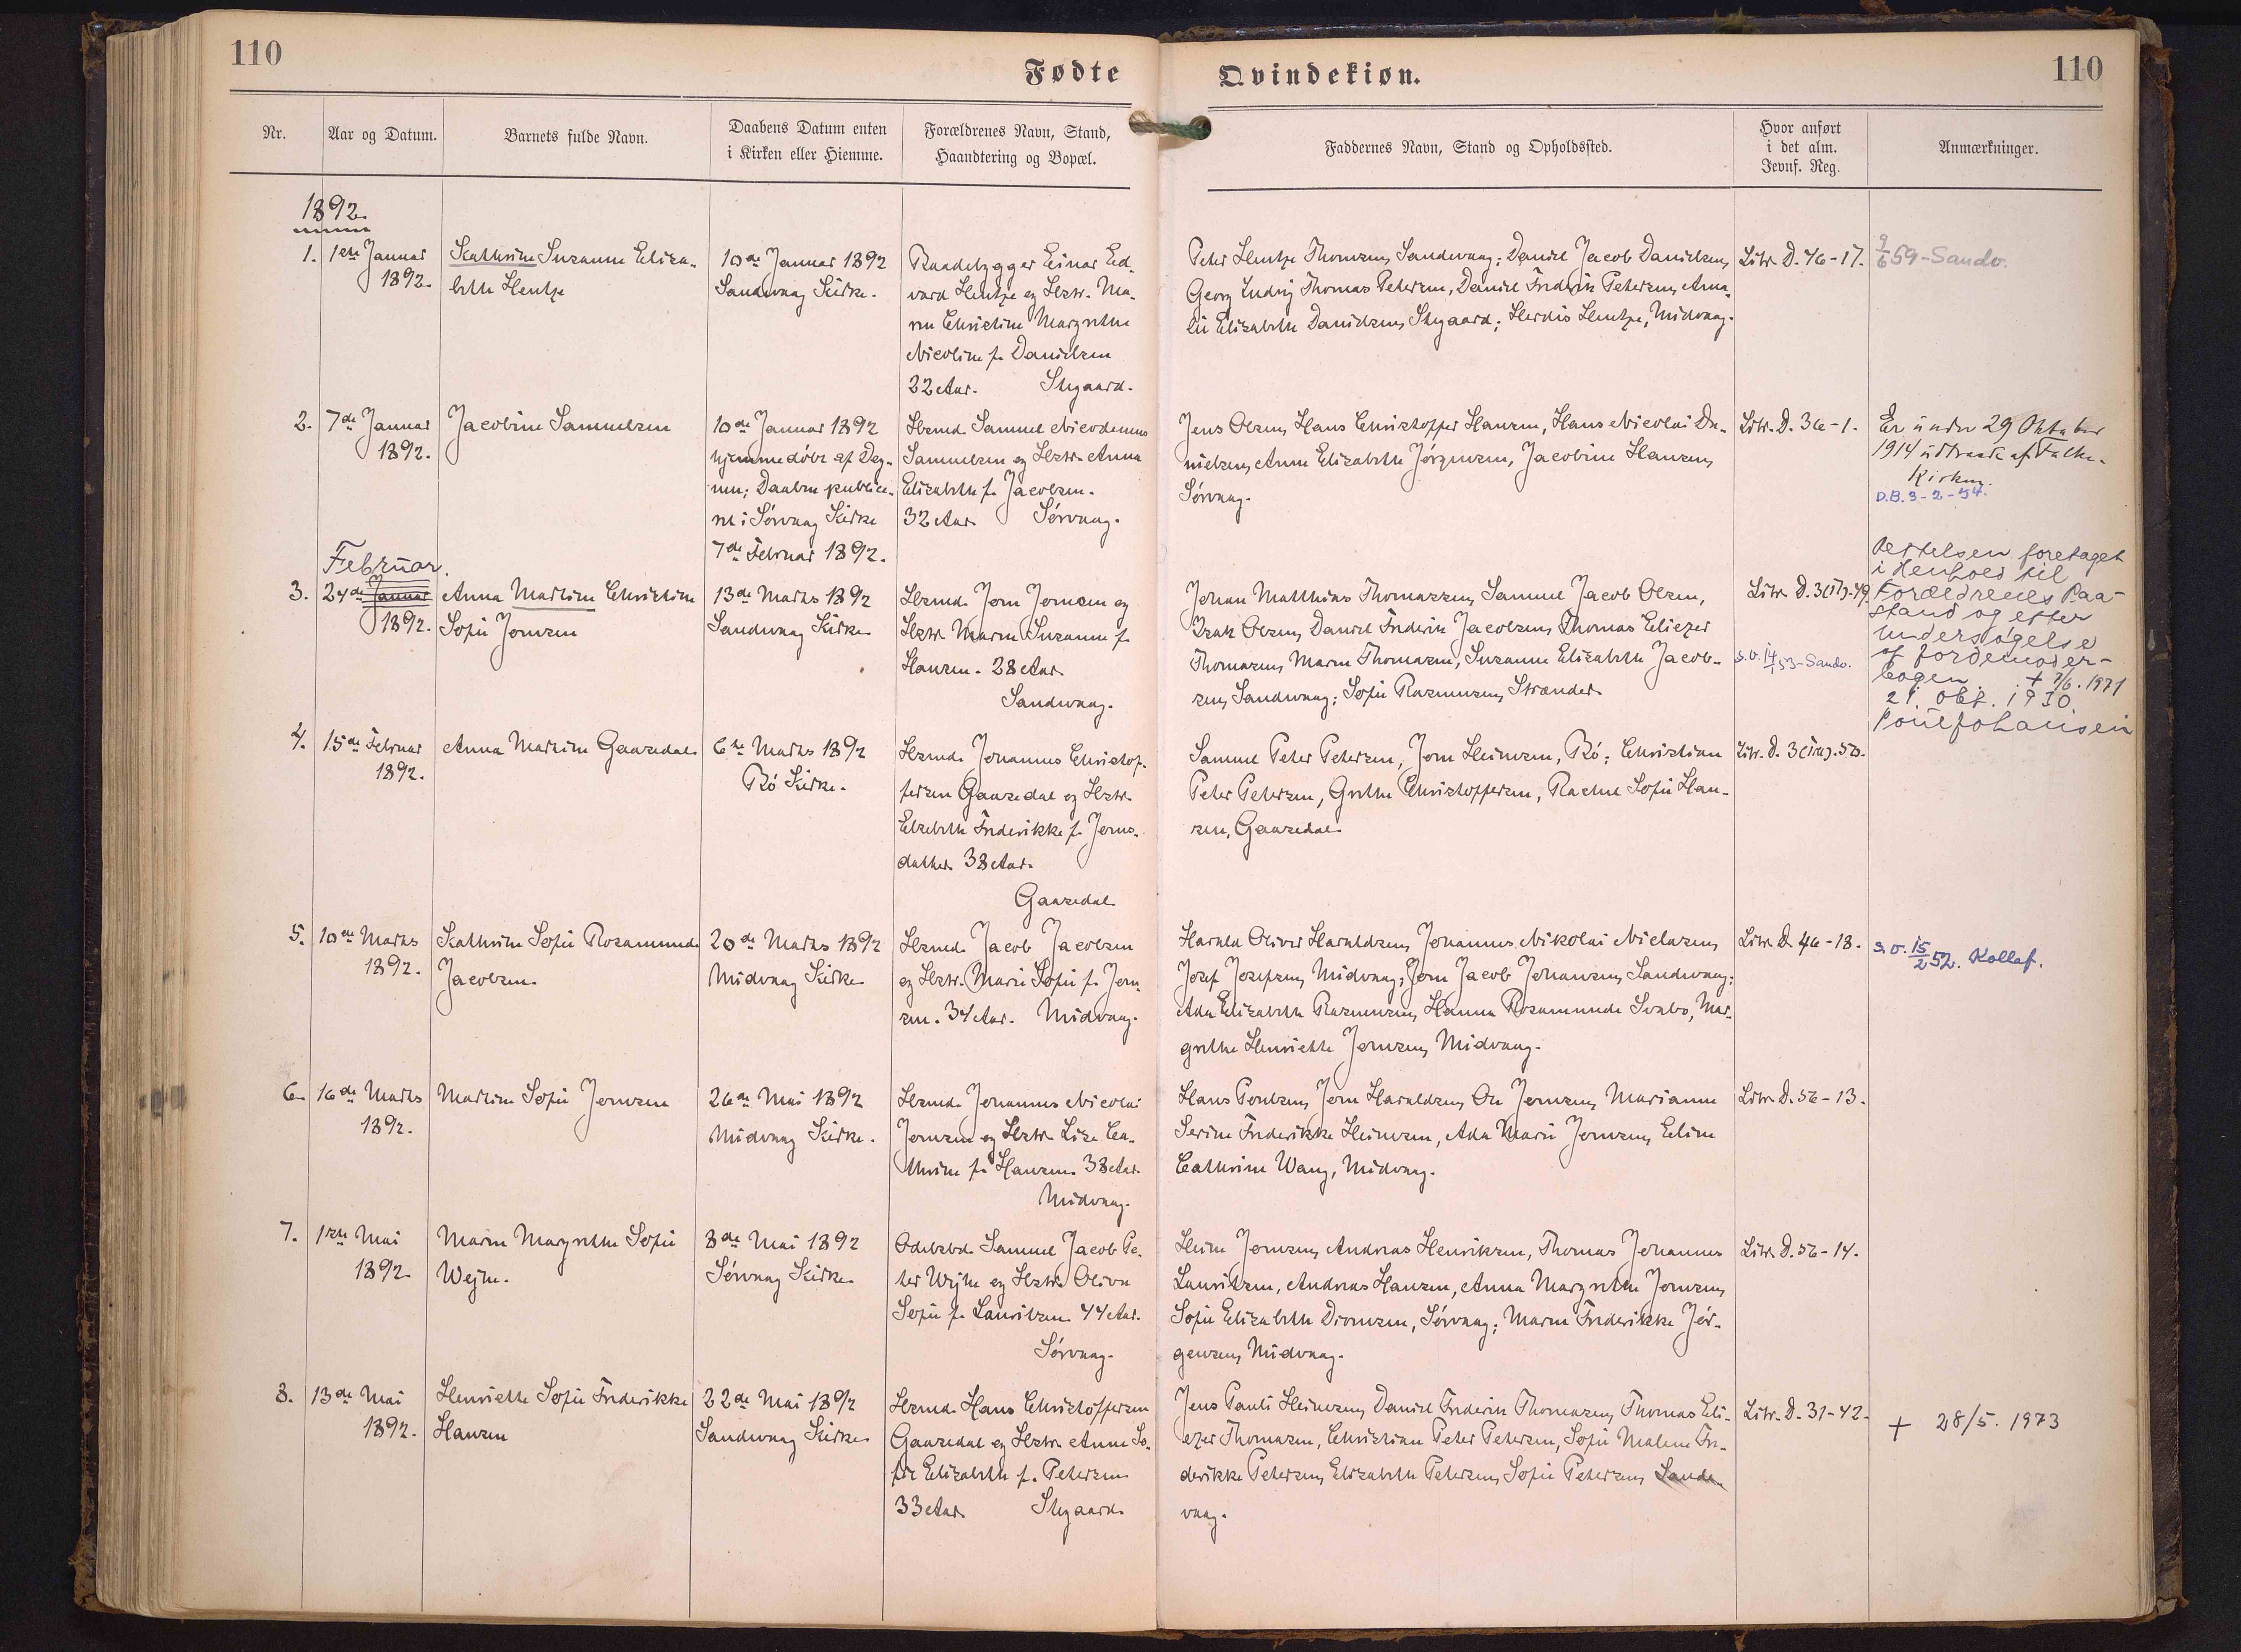 110
Fødte
Qvindekiøn.
110
Nr.
Aar og Datum.
Barnets fulde Navn.
Daabens Datum enten
i Kirken eller Hiemme.
Forældrenes Navn, Stand,
Haandtering og Bopæl.
Faddernes Navn, Stand og Opholdssted.
Hvor anført
i det alm.
Jevnf. Reg.
Anmærkninger.
1892.
1.
1ste Januar
1892.
Kathrine Susanne Elisa-
beth Hentze
10de Januar 1892
Sandevaag Kirke.
Raadebygger Einar Ed-
vard Hentze og Hstr. Ma-
ren Christine Margrethe
Nicoline f. Danielsen
22 Aar. Stegaard.
Peter Hentze Thomsen, Sandevaag; Daniel Jacob Danielsen,
Georg Ludvig Thomas Petersen, Daniel Frederik Petersen, Ama-
lie Elisabeth Danielsen, Stegaard; Herdis Hentze, Midvaag.
Litr. D. 46-17.
9/6 59 - Sandv.
2.
7de Januar
1892.
Jacobine Samuelsen
10de Januar 1892
hjemmedøbt af Deg-
nen; Daaben publice-
ret i Sørvaag Kirke
7de Februar 1892.
Hsmd. Samuel Nicodemus
Samuelsen og Hstr. Anna
Elisabeth f. Jacobsen.
32 Aar. Sørvaag.
Jens Olsen, Hans Christopher Hansen, Hans Nicolai Da-
nielsen, Anne Elisabeth Jørgensen, Jacobine Hansen,
Sørvaag.
Litr. D. 36-1.
Er under 29 Oktober
1914 udtraadt af Folke-
Kirken.
D.B. 3-2-54.
3.
Februar.
24de Januar
1892.
Anna Martine Christine
Sofie Joensen
13de Marts 1892
Sandevaag Kirke
Hsmd. Joen Joensen og
Hstr. Maren Susanne f.
Hansen. 28 Aar.
Sandevaag.
Johan Matthias Thomassen, Samuel Jacob Olsen,
Isak Olsen, Daniel Frederik Jacobsen, Thomas Eliezer
Thomasen, Maren Thomasen, Susanne Elisabeth Jacob-
sen, Sandevaag; Sofie Rasmussen, Strænder.
Litr. D. 3(17)-49.
s.v. 14/1 53 - Sandv.
Rettelsen foretaget
i Henhold til
Forældrenes Paa-
stand og efter
undersøgelse
af Jordemoder-
bogen. + 7/6. 1971
21. Okt. 1930.
Poul Johansen
4.
15de Februar
1892.
Anna Martine Gaasedal.
6te Marts 1892
Bø Kirke.
Hsmd. Johannes Christof-
fersen Gaasedal og Hstr.
Elsebeth Frederikke f. Joens-
datter 38 Aar.
Gaasedal.
Samuel Peter Petersen, Joen Heinesen, Bø; Christian
Peter Petersen, Grethe Christoffersen, Rachel Sofie Han-
sen, Gaasedal.
5.
10de Marts
1892.
Kathrine Sofie Rosamunde
Jacobsen.
20de Marts 1892
Midvaag Kirke
Hsmd. Jacob Jacobsen
og Hstr. Marie Sofie f. Joen-
sen. 34 Aar. Midvaag.
Harald Oliver Haraldsen, Johannes Nikolai Nielsen,
Josef Josefsen, Midvaag; Joen Jacob Johansen, Sandevaag;
Ada Elisabeth Rasmussen, Hanna Rosamunde Svabo, Mar-
grethe Henriette Joensen, Midvaag.
Litr. D. 46-18.
s.v. 15/2 52. Kollaf.
6.
16de Marts
1892.
Martine Sofie Joensen
26de Mai 1892
Midvaag Kirke.
Hsmd. Johannes Nicolai
Joensen og Hstr. Lise Ca-
thrine f. Hansen. 38 Aar.
Midvaag.
Hans Poulsen, Joen Haraldsen, Ole Joensen, Marianne
Serine Frederikke Heinesen, Ada Marie Joensen, Eline
Cathrine Wang, Midvaag.
Litr. D. 56-13.
7.
1ste Mai
1892.
Maren Margrethe Sofie
Wejhe.
8de Mai 1892
Sørvaag Kirke
Odelsbd. Samuel Jacob Pe-
ter Wejhe og Hstr. Olivia
Sofie f. Lauritsen. 44 Aar.
Sørvaag.
Heine Joensen, Andreas Henriksen, Thomas Johannes
Lauritsen, Andreas Hansen, Anna Margrethe Joensen,
Sofie Elisabeth Dionsen, Sørvaag; Maren Frederikke Jør-
gensen, Midvaag.
Litr. D. 56-14.
8.
13de Mai
1892.
Henriette Sofie Frederikke
Hansen
22de Mai 1892
Sandevaag Kirke
Hsmd. Hans Christoffersen
Gaasedal og Hstr. Anne So-
fie Elisabeth f. Petersen
33 Aar. Stegaard.
Jens Pauli Heinesen, Daniel Frederik Thomasen, Thomas Eli-
ezer Thomasen, Christian Peter Petersen, Sofie Malene Fre-
derikke Petersen, Elisabeth Petersen, Sofie Petersen, Sande-
vaag.
Litr. D. 31-42.
+ 28/5. 1973